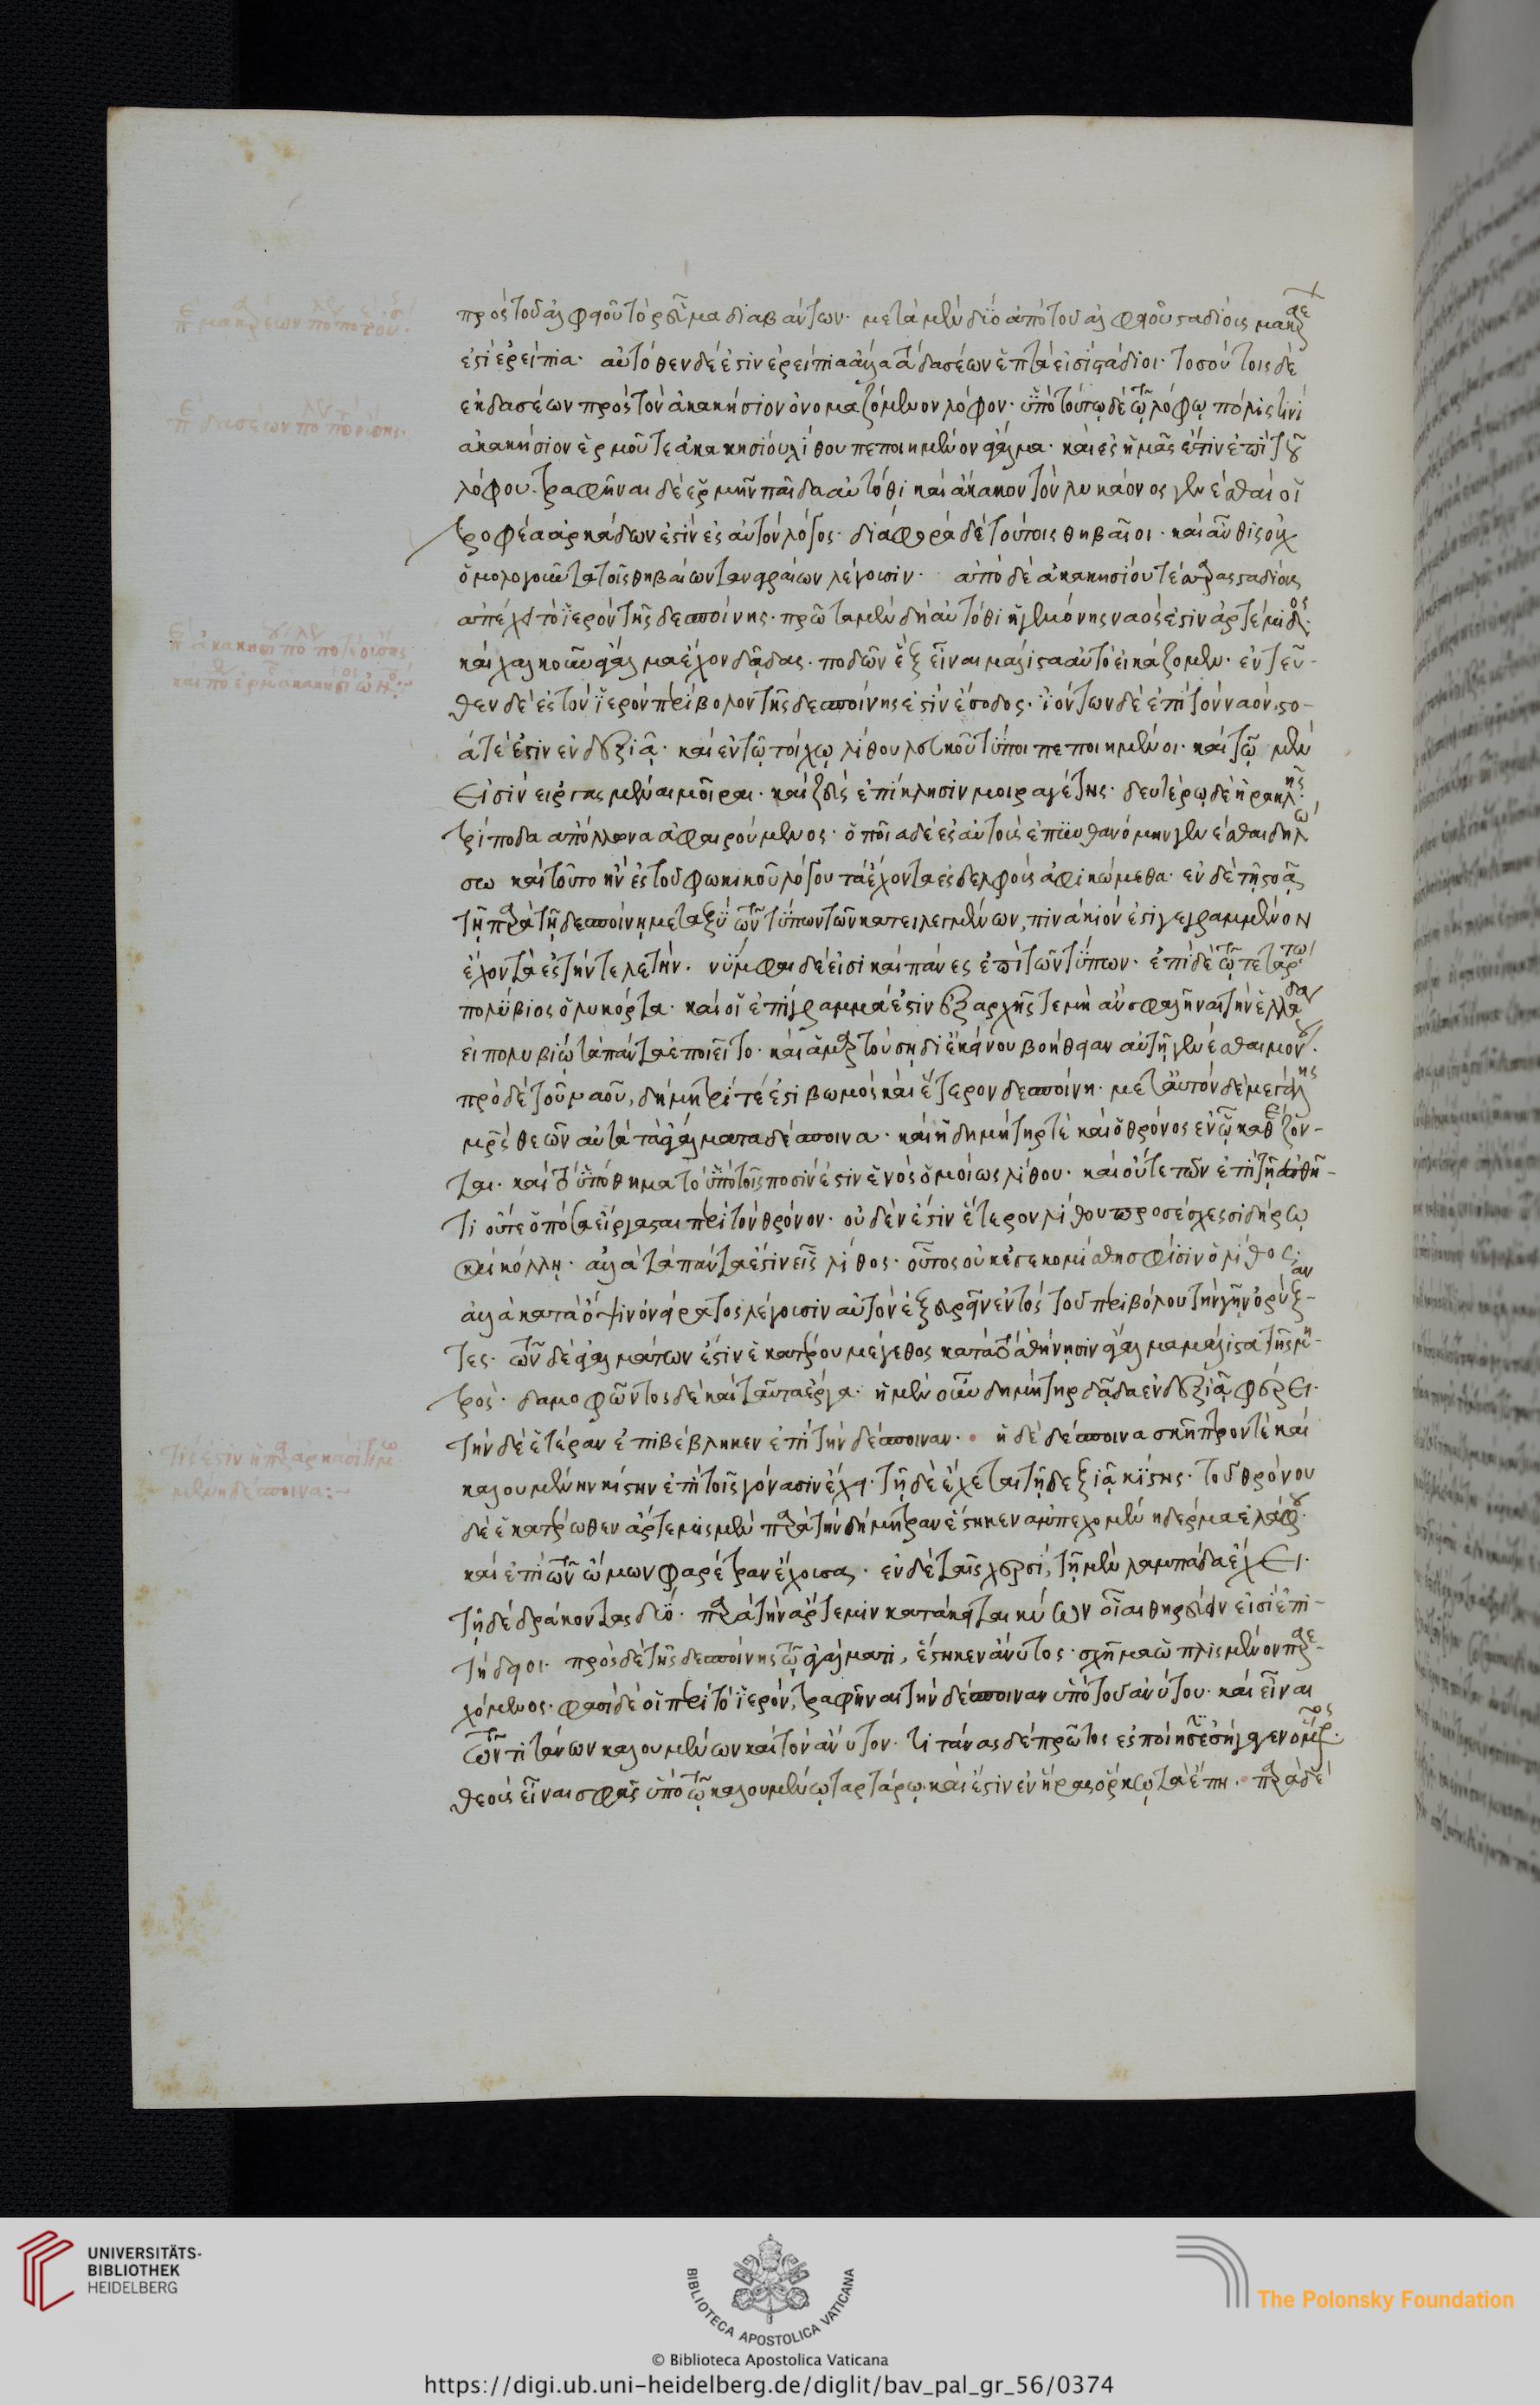 πρὸς τοῦ ἀλφειοῦ τὸ ῥεῦμα διαβάντων· μετὰ μὲν δὴ ἀπὸ τοῦ ἀλφειοῦ σταδίοις μακαρε
ἐστὶ ἐρείπια· αὐτόθεν δέ ἐστιν ἐρείπια ἄλλα τὰ δασέων ἑπτὰ εἰσὶ στάδιοι· τοσούτοις δὲ
ἐκ δασέων πρὸς τὸν ἀκακήσιον ὀνομαζόμενον λόφον· ὑπὸ τούτῳ δὲ τῷ λόφῳ πόλις τινὶ
ἀκακήσιον ἑρμοῦ τε ἀκακησίου λίθου πεποιημένον ἄγαλμα· καὶ ἐς ἡμᾶς ἐστιν ἐπὶ τοῦ
λόφου· τραφῆναι δὲ ἑρμῆν παῖδα αὐτόθι καὶ ἄκακον τὸν λυκάονος γενέσθαι οἱ
τροφέα ἀρκάδων ἐστὶν ἐς αὐτὸν λόγος· διάφορα δὲ τούτοις θηβαῖοι· καὶ αὖθις οὐχ
ὁμολογοῦντα τοῖς θηβαίων ταναγραίων λέγουσιν· ἀπὸ δὲ ἀκακησίου τέσσαρας σταδίους
ἀπέχει τὸ ἱερὸν τῆς δεσποίνης· πρῶτα μὲν δὴ αὐτόθι ἡγεμόνης ναός ἐστιν ἀρτέμιδος·
καὶ χαλκοῦν ἄγαλμα ἔχον δᾷδας· ποδῶν ἓξ εἶναι μάλιστα αὐτὸ εἰκάζομεν· ἐντεῦ-
θεν δὲ ἐς τὸν ἱερὸν περίβολον τῆς δεσποίνης ἐστὶν ἔσοδος· ἰόντων δὲ ἐπὶ τὸν ναόν, στο-
ά τέ ἐστιν ἐν δεξιᾷ· καὶ ἐν τῷ τοίχῳ λίθου λευκοῦ τύποι πεποιημένοι· καὶ τῷ μὲν
εἰσὶν εἰργασμέναι μοῖραι· καὶ ζεὺς ἐπίκλησιν μοιραγέτης· δευτέρῳ δὲ ἡρακλῆς
τρίποδα ἀπόλλωνα ἀφαιρούμενος· ὁποῖα δὲ ἐς αὐτοὺς ἐπυνθανόμην γενέσθαι δηλώ
σω καὶ τοῦτο ἢν ἐς τοῦ φωκικοῦ λόγου τὰ ἔχοντα ἐς δελφοὺς ἀφικώμεθα· ἐν δὲ τῇ στοᾷ
τῇ παρὰ τῇ δεσποίνῃ μεταξὺ τῶν τύπων τῶν κατειλεγμένων, πινάκιόν ἐστι γεγραμμένον
ἔχον τὰ ἐς τὴν τελετήν· νύμφαι δέ εἰσι καὶ πᾶνες ἐπὶ τῶν τύπων· ἐπὶ δὲ τῷ τετάρτῳ
πολύβιος ὁ λυκόρτα· καὶ οἱ ἐπίγραμμά ἐστιν ἐξ ἀρχῆς τε μὴ ἂν σφαλῆναι τὴν ἑλλάδα
εἰ πολυβίῳ τὰ πάντα ἐπείθετο· καὶ ἁμαρτούσῃ δι' ἐκείνου βοήθειαν αὐτῇ γενέσθαι μόνου·
πρὸ δὲ τοῦ ναοῦ, δήμητρί τέ ἐστι βωμὸς καὶ ἕτερον δεσποίνῃ· μετ' αὐτὸν δὲ μεγάλης
μητρός θεῶν αὐτὰ τὰ ἀγάλματα δέσποινα· καὶ ἡ δημήτηρ τὲ καὶ ὁ θρόνος ἐν ᾧ καθέζον-
ται· καὶ τὸ ὑπόθημα τὸ ὑπὸ τοῖς ποσὶν ἐστιν ἑνὸς ὁμοίως λίθου· καὶ οὔτε τῶν ἐπὶ τῇ ἐσθῆ-
τι οὔτε ὁπόσα εἴργασται περὶ τὸν θρόνον· οὐδέν ἐστιν ἕτερον λίθου προσεσχὲς σιδήρῳ
καὶ κόλλῃ· ἀλλὰ τὰ πάντα ἐστὶν εἷς λίθος· οὗτος οὐκ ἐσεκομίσθη σφίσιν ὁ λίθος
ἀλλὰ κατὰ ὄψιν ὀνείρατος λέγουσιν αὐτὸν ἐξευρεῖν ἐντὸς τοῦ περιβόλου τὴν γῆν ὀρύξαν-
τες· τῶν δὲ ἀγαλμάτων ἐστὶν ἑκατέρου μέγεθος κατὰ τὸ ἀθήνησιν ἄγαλμα μάλιστα τῆς μη-
τρός· δαμοφῶντος δὲ καὶ ταῦτα ἔργα· ἡ μὲν οὖν δημήτηρ δᾷδα ἐν δεξιᾷ φέρει·
τὴν δὲ ἑτέραν ἐπιβέβληκεν ἐπὶ τὴν δέσποιναν· ἡ δὲ δέσποινα σκῆπτρον τὲ καὶ
καλουμένην κίστην ἐπὶ τοῖς γόνασιν ἔχει· τῇ δὲ ἔχεται τῇ δεξιᾷ κίστης· τοῦ θρόνου
δὲ ἑκατέρωθεν ἄρτεμις μὲν παρὰ τὴν δήμητραν ἕστηκεν ἀμπεχομένη δέρμα ἐλάφου·
καὶ ἐπὶ τῶν ὤμων φαρέτραν ἔχουσα· ἐν δὲ ταῖς χερσί, τῇ μὲν λαμπάδα ἔχει·
τῇ δὲ δράκοντας δύο· παρὰ τὴν ἄρτεμιν κατάκειται κύων οἷαι θηρεύειν εἰσὶ ἐπι-
τήδειοι· πρὸς δὲ τῆς δεσποίνης τῷ ἀγάλματι, ἕστηκεν ἄνυτος· σχῆμα ὡπλισμένον παρε-
χόμενος· φασὶ δὲ οἱ περὶ τὸ ἱερόν, τραφῆναι τὴν δέσποιναν ὑπὸ τοῦ ἀνύτου· καὶ εἶναι
τῶν τιτάνων καλουμένων καὶ τὸν ἄνυτον· τιτᾶνας δὲ πρῶτος ἐς ποίησιν ἐσήγαγεν ὅμηρος·
θεοὺς εἶναι σφᾶς ὑπὸ τῷ καλουμένῳ ταρτάρῳ· καὶ ἔστιν ἐν ἥρας ὅρκῳ τὰ ἔπη· παρὰ δὲ
UNIVERSITÄTS-
BIBLIOTHEK
HEIDELBERG
BIBLIOTECA APOSTOLICA VATICANA
© Biblioteca Apostolica Vaticana
The Polonsky Foundation
https://digi.ub.uni-heidelberg.de/diglit/bav_pal_gr_56/0374